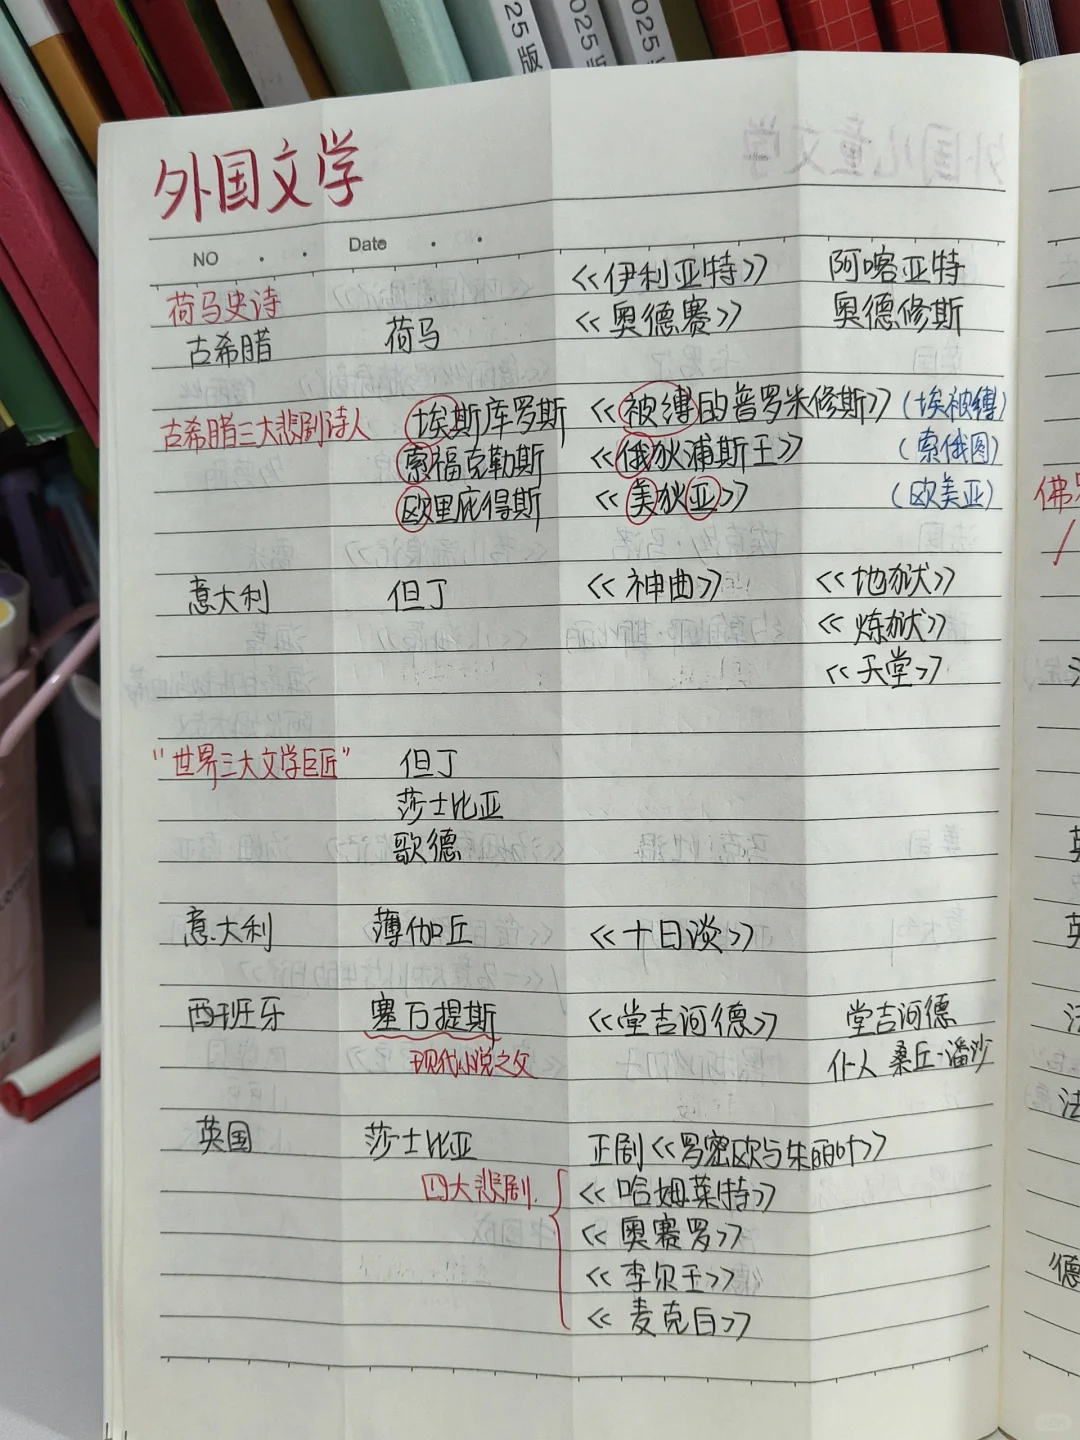 25版
2025版
2025版
外国文学
NO . . Date . .
《伊利亚特》 阿喀亚特
荷马史诗
古希腊 荷马 《奥德赛》 奥德修斯
古希腊三大悲剧诗人 埃斯库罗斯 《被缚的普罗米修斯》 (埃被缚)
索福克勒斯 《俄狄浦斯王》 (索俄图)
欧里庇得斯 《美狄亚》 (欧美亚)
意大利 但丁 《神曲》 《地狱》
《炼狱》
《天堂》
“世界三大文学巨匠” 但丁
莎士比亚
歌德
意大利 薄伽丘 《十日谈》
西班牙 塞万提斯 《堂吉诃德》 堂吉诃德
现代小说之父 仆人 桑丘·潘沙
英国 莎士比亚 正剧《罗密欧与朱丽叶》
四大悲剧 《哈姆莱特》
《奥赛罗》
《李尔王》
《麦克白》